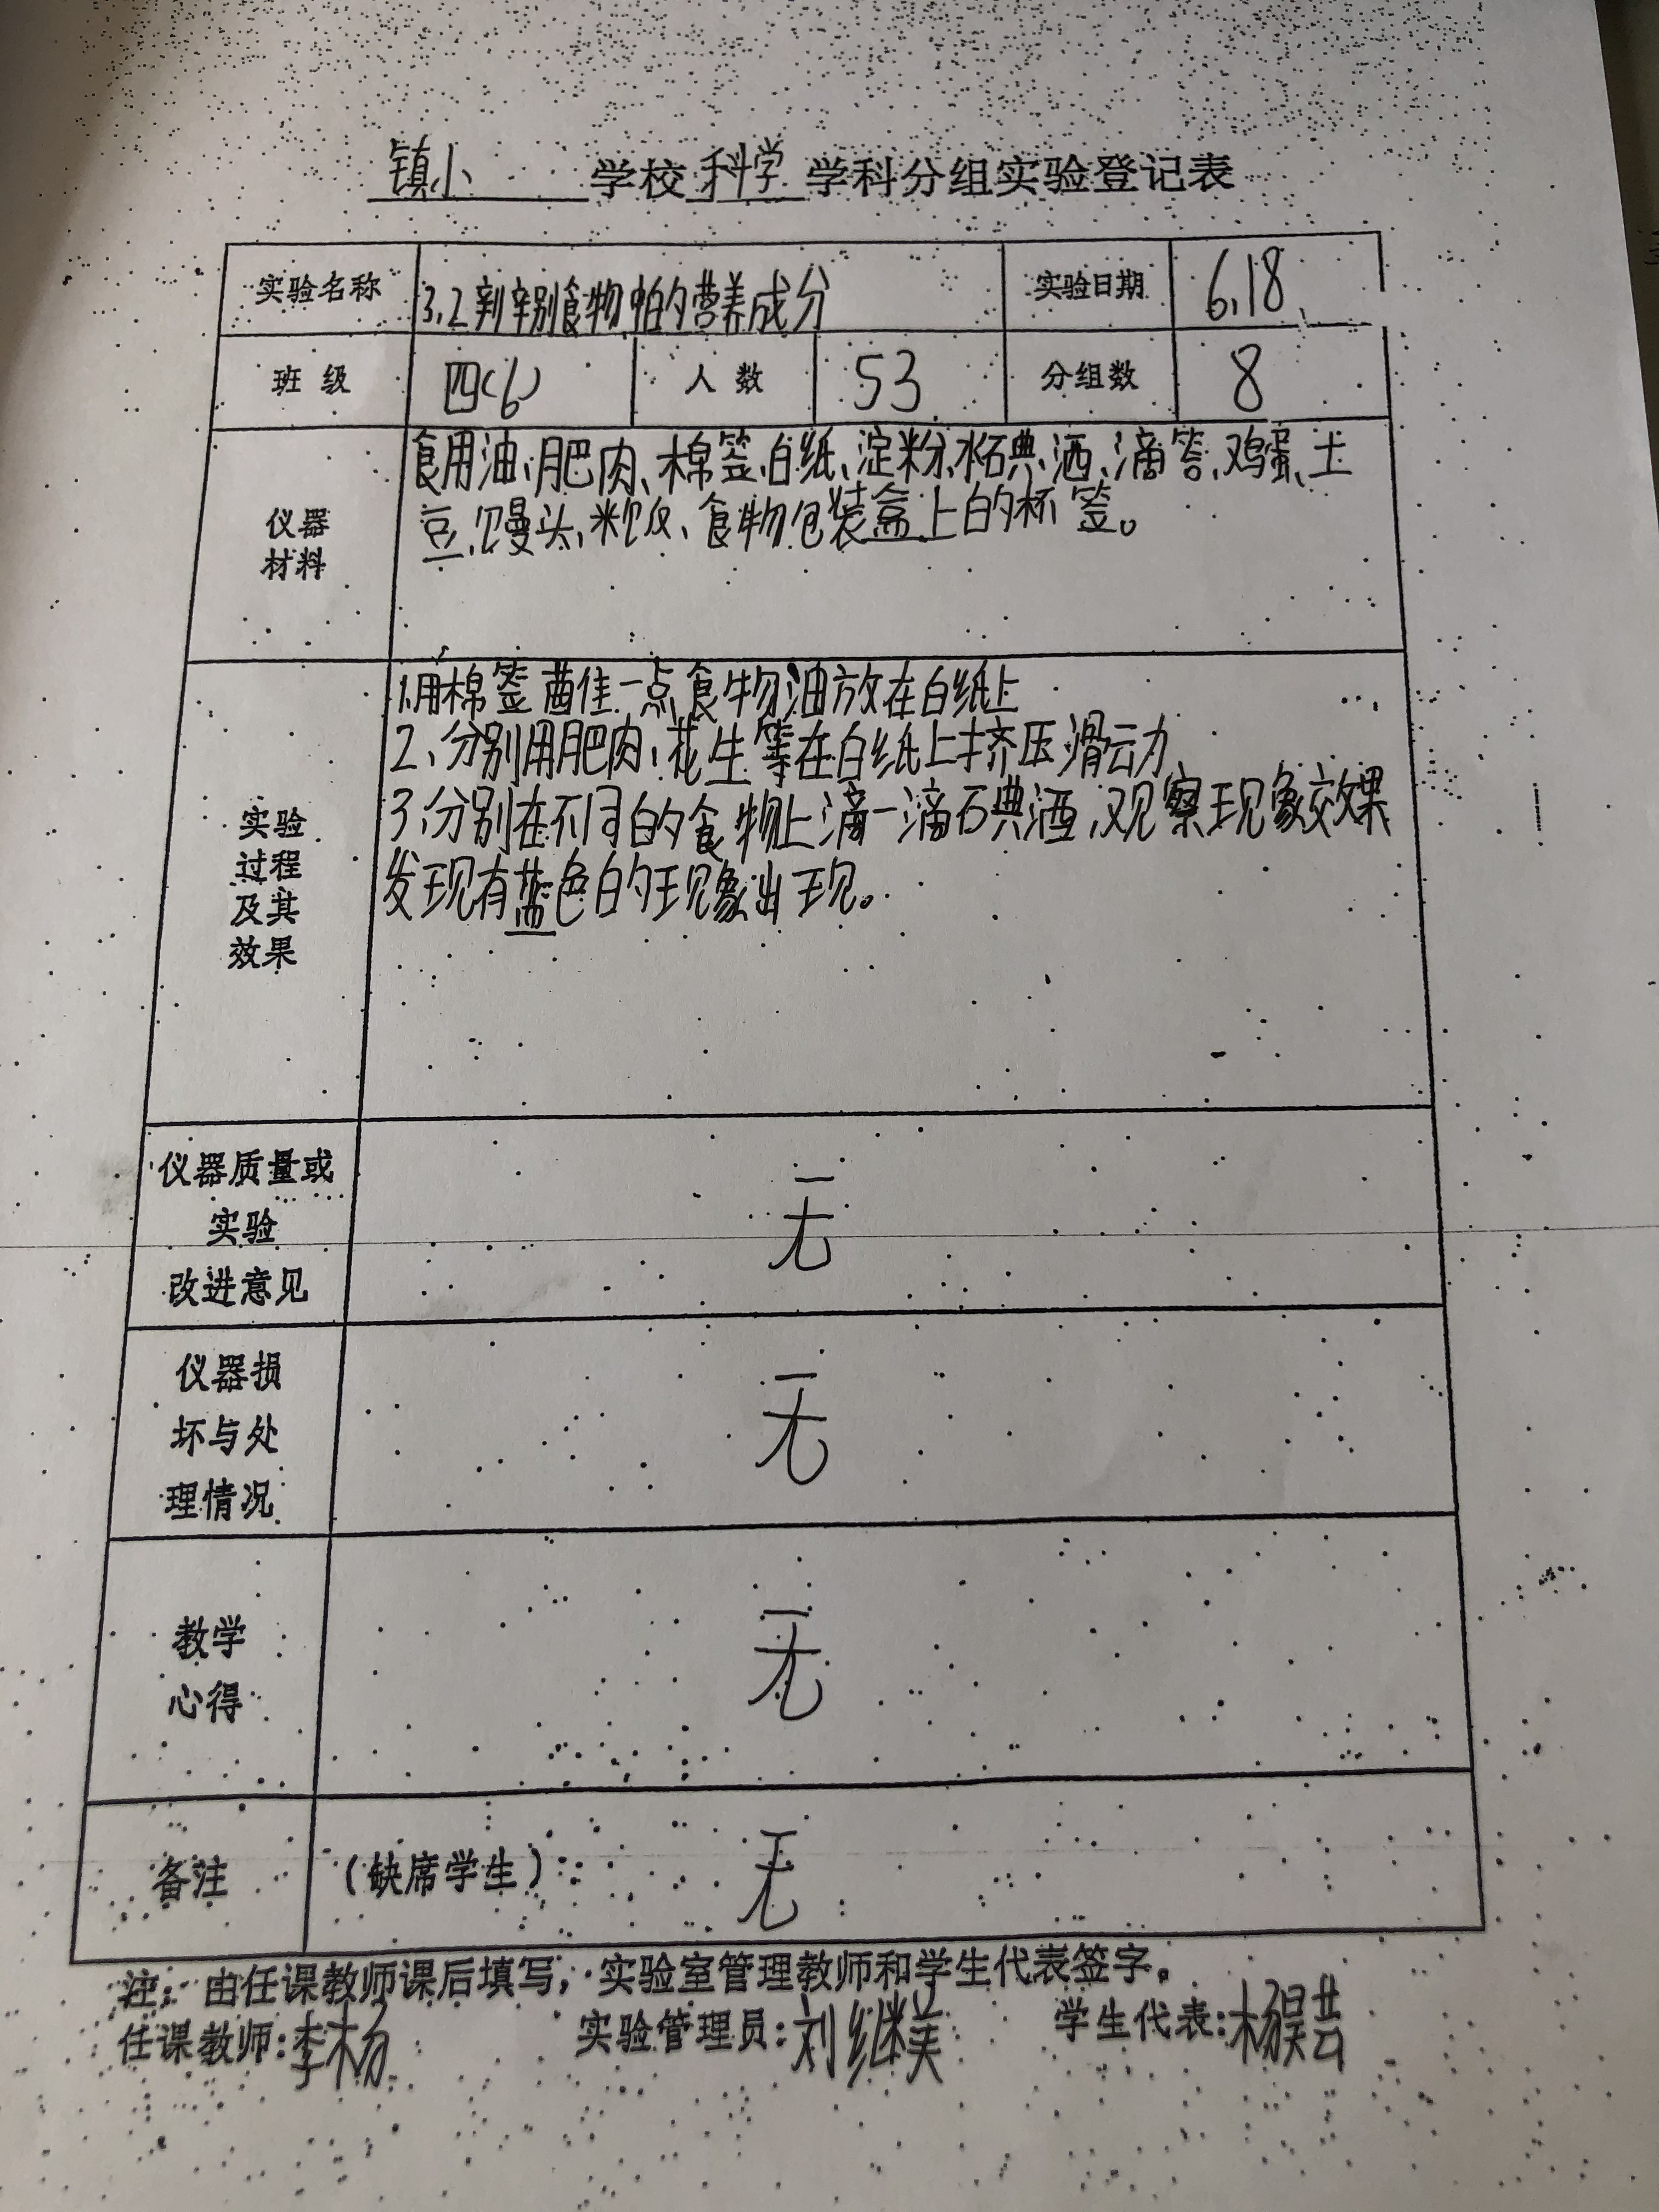 镇小 学校 科学 学科分组实验登记表
实验名称 3.2辨别食物中的营养成分 实验日期 6.18
班级 四(6) 人数 53 分组数 8
仪器
材料
食用油、肥肉、棉签、白纸、淀粉、水、碘酒、滴管、鸡蛋、土
豆、馒头、米饭、食物包装盒上的标签。
实验
过程
及其
效果
1.用棉签蘸一点食物油放在白纸上
2、分别用肥肉、花生等在白纸上挤压滑动
3、分别在不同的食物上滴一滴碘酒,观察现象效果
发现有蓝色的现象出现。
仪器质量或
实验
改进意见
无
仪器损
坏与处
理情况
无
教学
心得
无
备注 (缺席学生): 无
注:由任课教师课后填写,实验室管理教师和学生代表签字。
任课教师:李杨 实验管理员:刘继美 学生代表:杨昊芸